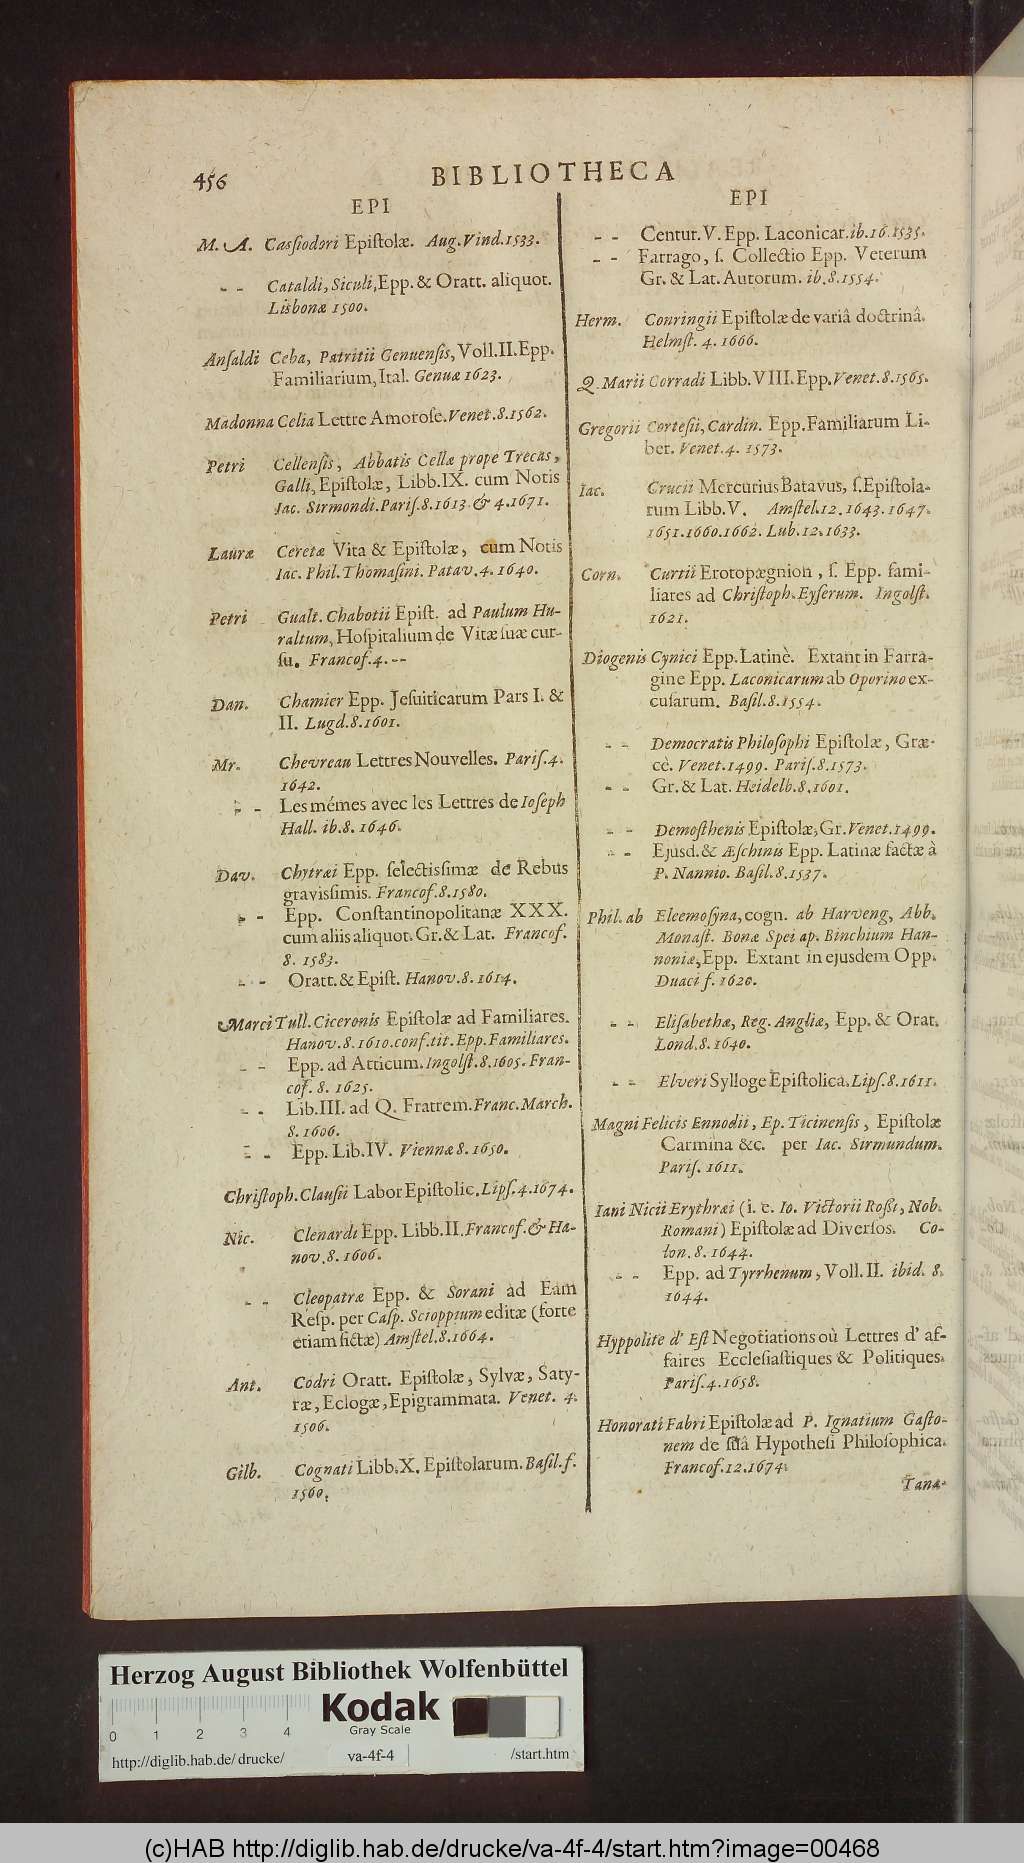 456
BIBLIOTHECA
EPI
M. A. Cassiodori Epistolæ. Aug. Vind. 1533.
- - Cataldi, Siculi, Epp. & Oratt. aliquot.
Lisbonæ 1500.
Ansaldi Ceba, Patritii Genuensis, Voll. II. Epp.
Familiarium, Ital. Genuæ 1623.
Madonna Celia Lettre Amorose. Venet. 8. 1562.
Petri Cellensis, Abbatis Cellæ prope Trecas,
Galli, Epistolæ, Libb. IX. cum Notis
Iac. Sirmondi. Paris. 8. 1613 & 4. 1671.
Lauræ Ceretæ Vita & Epistolæ, cum Notis
Iac. Phil. Thomasini. Patav. 4. 1640.
Petri Gualt. Chabotii Epist. ad Paulum Hu-
raltum, Hospitalium de Vitæ suæ cur-
su. Francof. 4. --
Dan. Chamier Epp. Jesuiticarum Pars I. &
II. Lugd. 8. 1601.
Mr. Chevreau Lettres Nouvelles. Paris. 4.
1642.
- - Les mémes avec les Lettres de Ioseph
Hall. ib. 8. 1646.
Dav. Chytræi Epp. selectissimæ de Rebus
gravissimis. Francof. 8. 1580.
- - Epp. Constantinopolitanæ XXX.
cum aliis aliquot. Gr. & Lat. Francof.
8. 1583.
- - Oratt. & Epist. Hanov. 8. 1614.
Marci Tull. Ciceronis Epistolæ ad Familiares.
Hanov. 8. 1610. conf. tit. Epp. Familiares.
- - Epp. ad Atticum. Ingolst. 8. 1605. Fran-
cof. 8. 1625.
- - Lib. III. ad Q. Fratrem. Franc. March.
8. 1606.
- - Epp. Lib. IV. Viennæ 8. 1650.
Christoph. Clausii Labor Epistolic. Lips. 4. 1674.
Nic. Clenardi Epp. Libb. II. Francof. & Ha-
nov. 8. 1606.
- - Cleopatræ Epp. & Sorani ad Eam
Resp. per Casp. Scioppium editæ (forte
etiam fictæ) Amstel. 8. 1664.
Ant. Codri Oratt. Epistolæ, Sylvæ, Saty-
ræ, Eclogæ, Epigrammata. Venet. 4.
1506.
Gilb. Cognati Libb. X. Epistolarum. Basil. f.
1560.
EPI
- - Centur. V. Epp. Laconicar. ib. 16. 1535.
- - Farrago, s. Collectio Epp. Veterum
Gr. & Lat. Autorum. ib. 8. 1554.
Herm. Conringii Epistolæ de variâ doctrinâ.
Helmst. 4. 1666.
Q. Marii Corradi Libb. VIII. Epp. Venet. 8. 1565.
Gregorii Cortesii, Cardin. Epp. Familiarum Li-
ber. Venet. 4. 1573.
Iac. Crucii Mercurius Batavus, s. Epistola-
rum Libb. V. Amstel. 12. 1643. 1647.
1651. 1660. 1662. Lub. 12. 1633.
Corn. Curtii Erotopægnion, s. Epp. fami-
liares ad Christoph. Eyserum. Ingolst.
1621.
Diogenis Cynici Epp. Latinè. Extant in Farra-
gine Epp. Laconicarum ab Oporino ex-
cusarum. Basil. 8. 1554.
- - Democratis Philosophi Epistolæ, Græ-
cè. Venet. 1499. Paris. 8. 1573.
- - Gr. & Lat. Heidelb. 8. 1601.
- - Demosthenis Epistolæ, Gr. Venet. 1499.
- - Ejusd. & Æschinis Epp. Latinæ factæ à
P. Nannio. Basil. 8. 1537.
Phil. ab Eleemosyna, cogn. ab Harveng, Abb.
Monast. Bonæ Spei ap. Binchium Han-
noniæ, Epp. Extant in ejusdem Opp.
Duaci f. 1620.
- - Elisabethæ, Reg. Angliæ, Epp. & Orat.
Lond. 8. 1640.
- - Elveri Sylloge Epistolica. Lips. 8. 1611.
Magni Felicis Ennodii, Ep. Ticinensis, Epistolæ
Carmina &c. per Iac. Sirmundum.
Paris. 1611.
Iani Nicii Erythræi (i. e. Io. Victorii Rossi, Nob.
Romani) Epistolæ ad Diversos. Co-
lon. 8. 1644.
- - Epp. ad Tyrrhenum, Voll. II. ibid. 8.
1644.
Hyppolite d' Est Negotiations où Lettres d' af-
faires Ecclesiastiques & Politiques.
Paris. 4. 1658.
Honorati Fabri Epistolæ ad P. Ignatium Gasto-
nem de suâ Hypothesi Philosophica.
Francof. 12. 1674.
Tana-
Herzog August Bibliothek Wolfenbüttel
Kodak
Gray Scale
0 1 2 3 4
http://diglib.hab.de/drucke/ va-4f-4 /start.htm
(c)HAB http://diglib.hab.de/drucke/va-4f-4/start.htm?image=00468